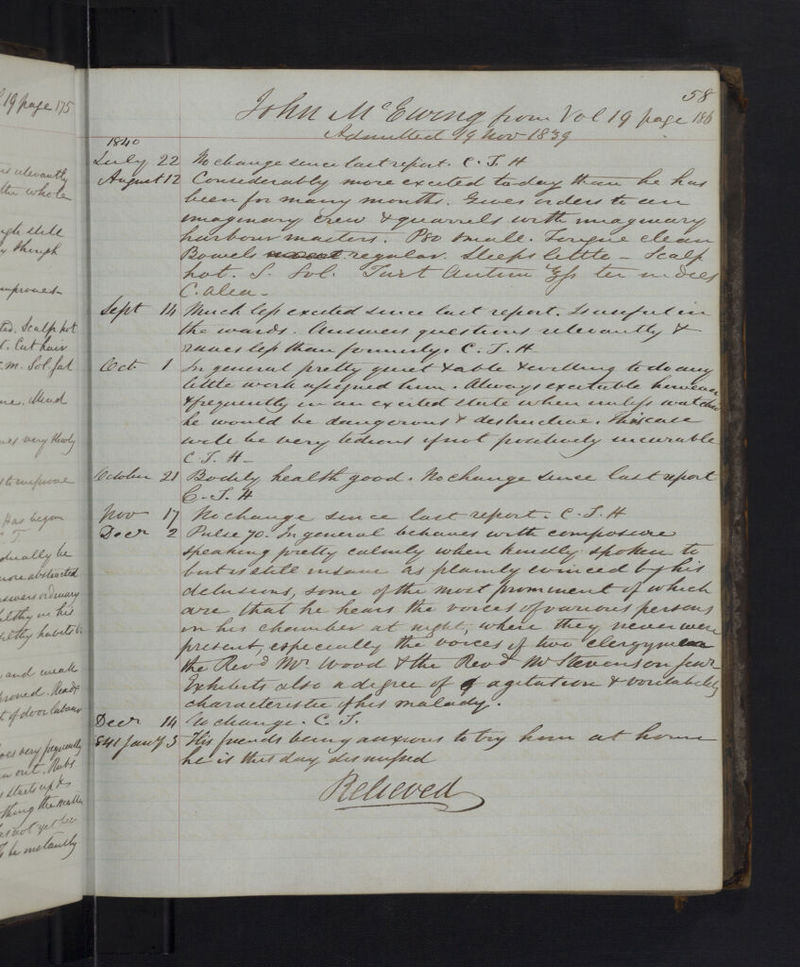 58
John McEwing from Vol 19 page 186
Admitted 19 Nov 1839
1840
July 22 No change since last report. C. J. H
August 12 Considerably more excited today than he has
been for many months. Gives orders to an
imaginary crew & quarrels with imaginary
harbour masters. P80 small. Tongue clean
Bowels regular. Sleeps little - Scalp
hot. S. Sol. Tart Antim
C. alea -
Sept 14 Much less excited since last report. Is useful in
the wards. Answers questions relevantly &
raves less than formerly. C. J. H
Oct 1 In general pretty quiet & able & willing to do any
little work assigned him. Always excitable however
& frequently in an excited state when unless watched
he would be dangerous & destructive. This case
will be very tedious if not positively incurable
C. J. H -
October 21 Bodily health good. No change since last report
C. J. H
Nov 17 No change since last report. C. J. H
Decr 2 Pulse 70. In general behaves with composure
speaking pretty calmly when kindly spoken to
but is still insane as plainly evinced by his
delusions, some of the most prominent of which
are that he hears the voices of various persons
in his chamber at night, where they never were
present, especially the voices of two clergymen
the Revd Mr Wood & the Revd Mr Stevenson
Exhibits also a degree of agitation & irritability
characteristic of his malady.
Decr 14 No change. C. J.
841 Jany 5 His friends being anxious to try him at home
he is this day dismissed
Relieved
19 page 175
relevantly
the whole
still
though
improves -
Scalp hot
Cut hair
Sol. Tart
Mind
very
to improve
Has begun
gradually be
more abstracted
answers ordinary
in his
habits
and weak
Heads
of door labour
very frequently
out. Rubs
starts up &
thing the matter
not yet
be instantly